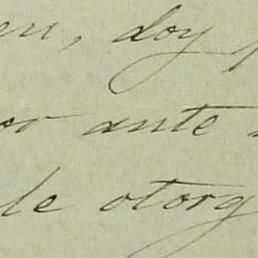 en, doy
or ante
le otorg